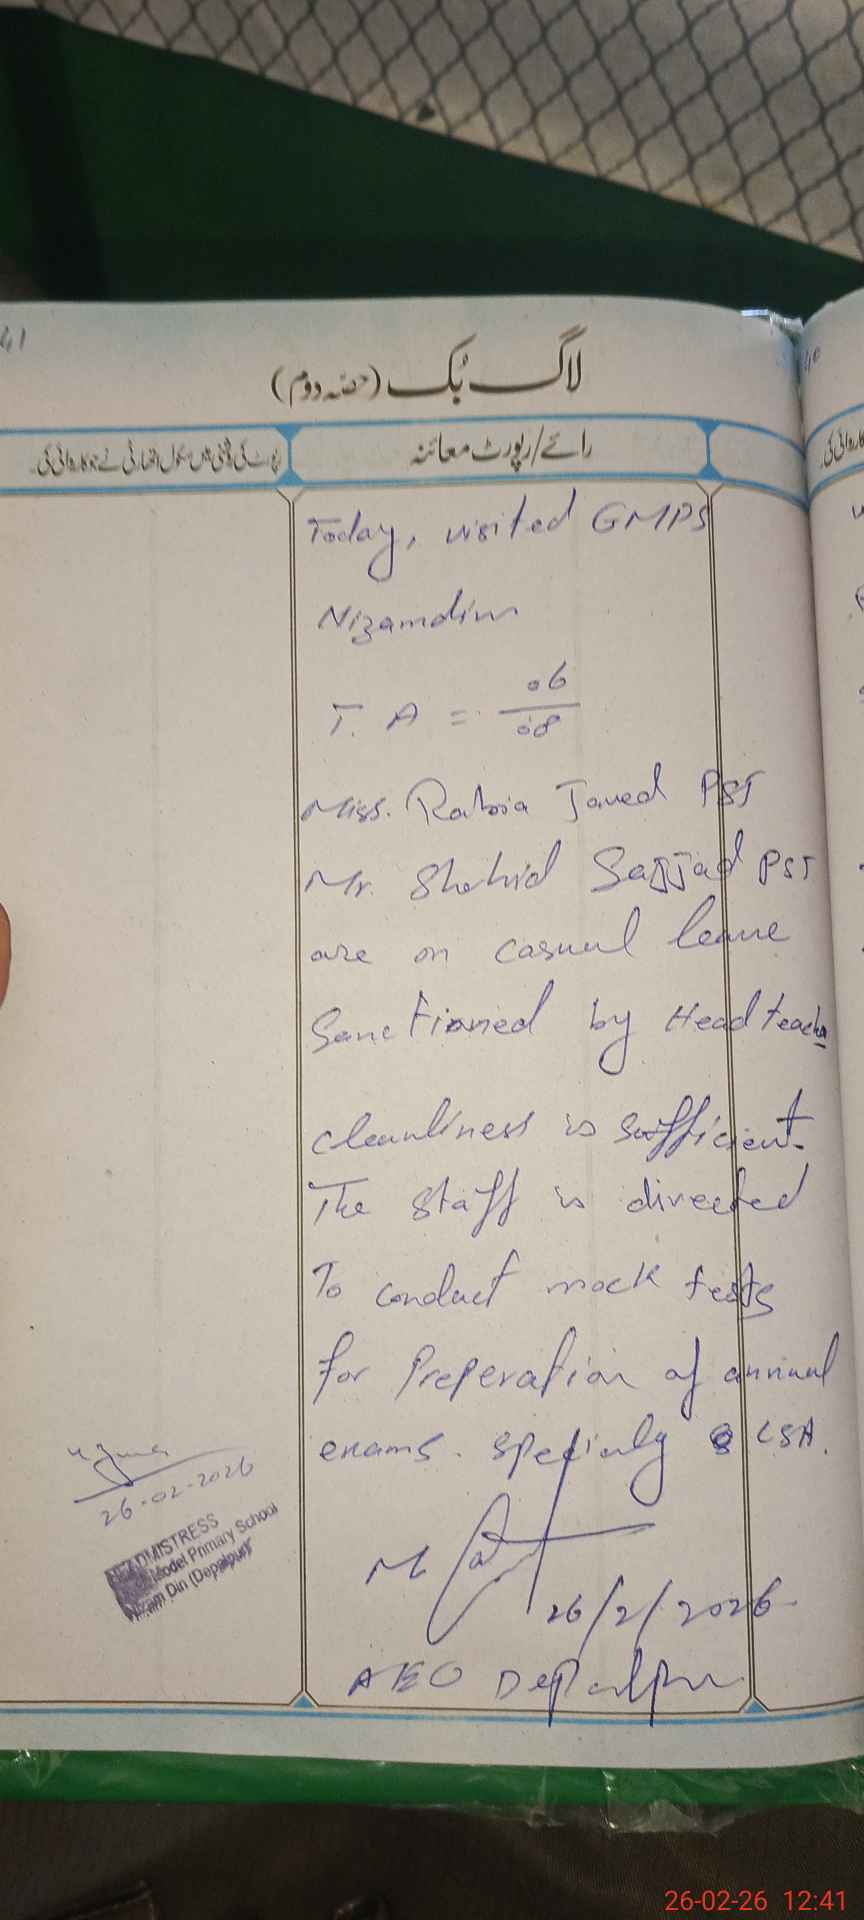 41
لاگ بُک (حصہ دوم)
رائے/رپورٹ معائنہ
رپورٹ کی روشنی میں سکول اتھارٹی نے جو کاروائی کی۔
Today, visited GMPS
Nizamdin
T. A = 06/08
Miss. Rabia Javed PST
Mr. Shahid Sajjad PST
are on casual leave
Sanctioned by Head teacher
cleanliness is sufficient.
The staff is directed
To conduct mock tests
for Preperation of annual
exams. specialy LSA.
M
26/2/2026
AEO Depalpur
26-02-2026
HEADMISTRESS
Model Primary School
Nizam Din (Depalpur)
40
26-02-26 12:41